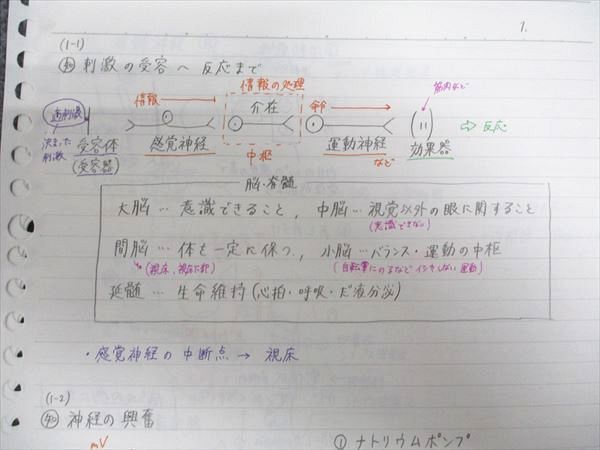 1.
(1-1)
刺激の受容〜反応まで
情報の処理
筋肉など
適刺激
情報
介在
命令
反応
決まった刺激
受容体
(受容器)
感覚神経
中枢
運動神経
など
効果器
脳・脊髄
大脳…意識できること, 中脳…視覚以外の眼に関すること
(意識できない)
間脳…体を一定に保つ, 小脳…バランス・運動の中枢
(視床、視床下部)
(自転車にのるなど イシキしない運動)
延髄…生命維持(心拍・呼吸・だ液分泌)
・感覚神経の中断点→視床
(1-2)
神経の興奮
mV
① ナトリウムポンプ